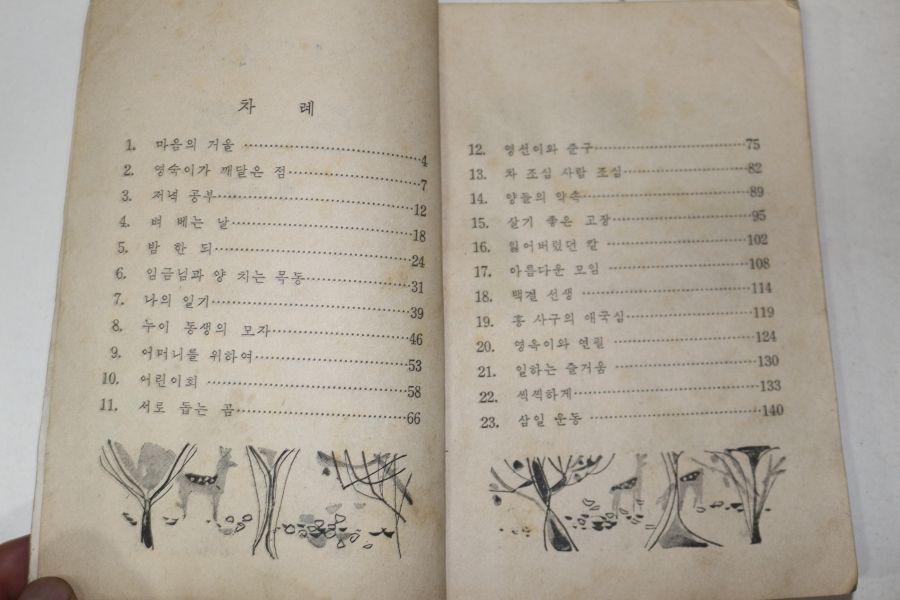 차 례
1. 마음의 거울 4
2. 영숙이가 깨달은 점 7
3. 저녁 공부 12
4. 벼 베는 날 18
5. 밤 한 되 24
6. 임금님과 양 치는 목동 31
7. 나의 일기 39
8. 누이 동생의 모자 46
9. 어머니를 위하여 53
10. 어린이회 58
11. 서로 돕는 곰 66
12. 영선이와 준구 75
13. 차 조심 사람 조심 82
14. 양들의 약속 89
15. 살기 좋은 고장 95
16. 잃어버렸던 칼 102
17. 아름다운 모임 108
18. 백결 선생 114
19. 홍 사구의 애국심 119
20. 영옥이와 연필 124
21. 일하는 즐거움 130
22. 씩씩하게 133
23. 삼일 운동 140